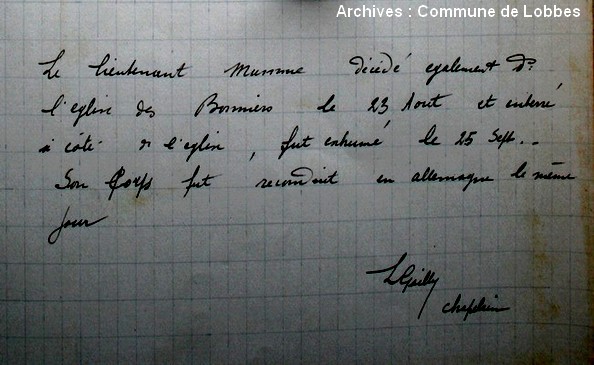 Archives : Commune de Lobbes
Le lieutenant décédé egalement ds
l'eglise des Bonniers le 23 Aout et enterré
à côté de l'eglise, fut exhumé le 25 Sept..
Son Corps fut reconduit en allemagne le même
jour
chaplain